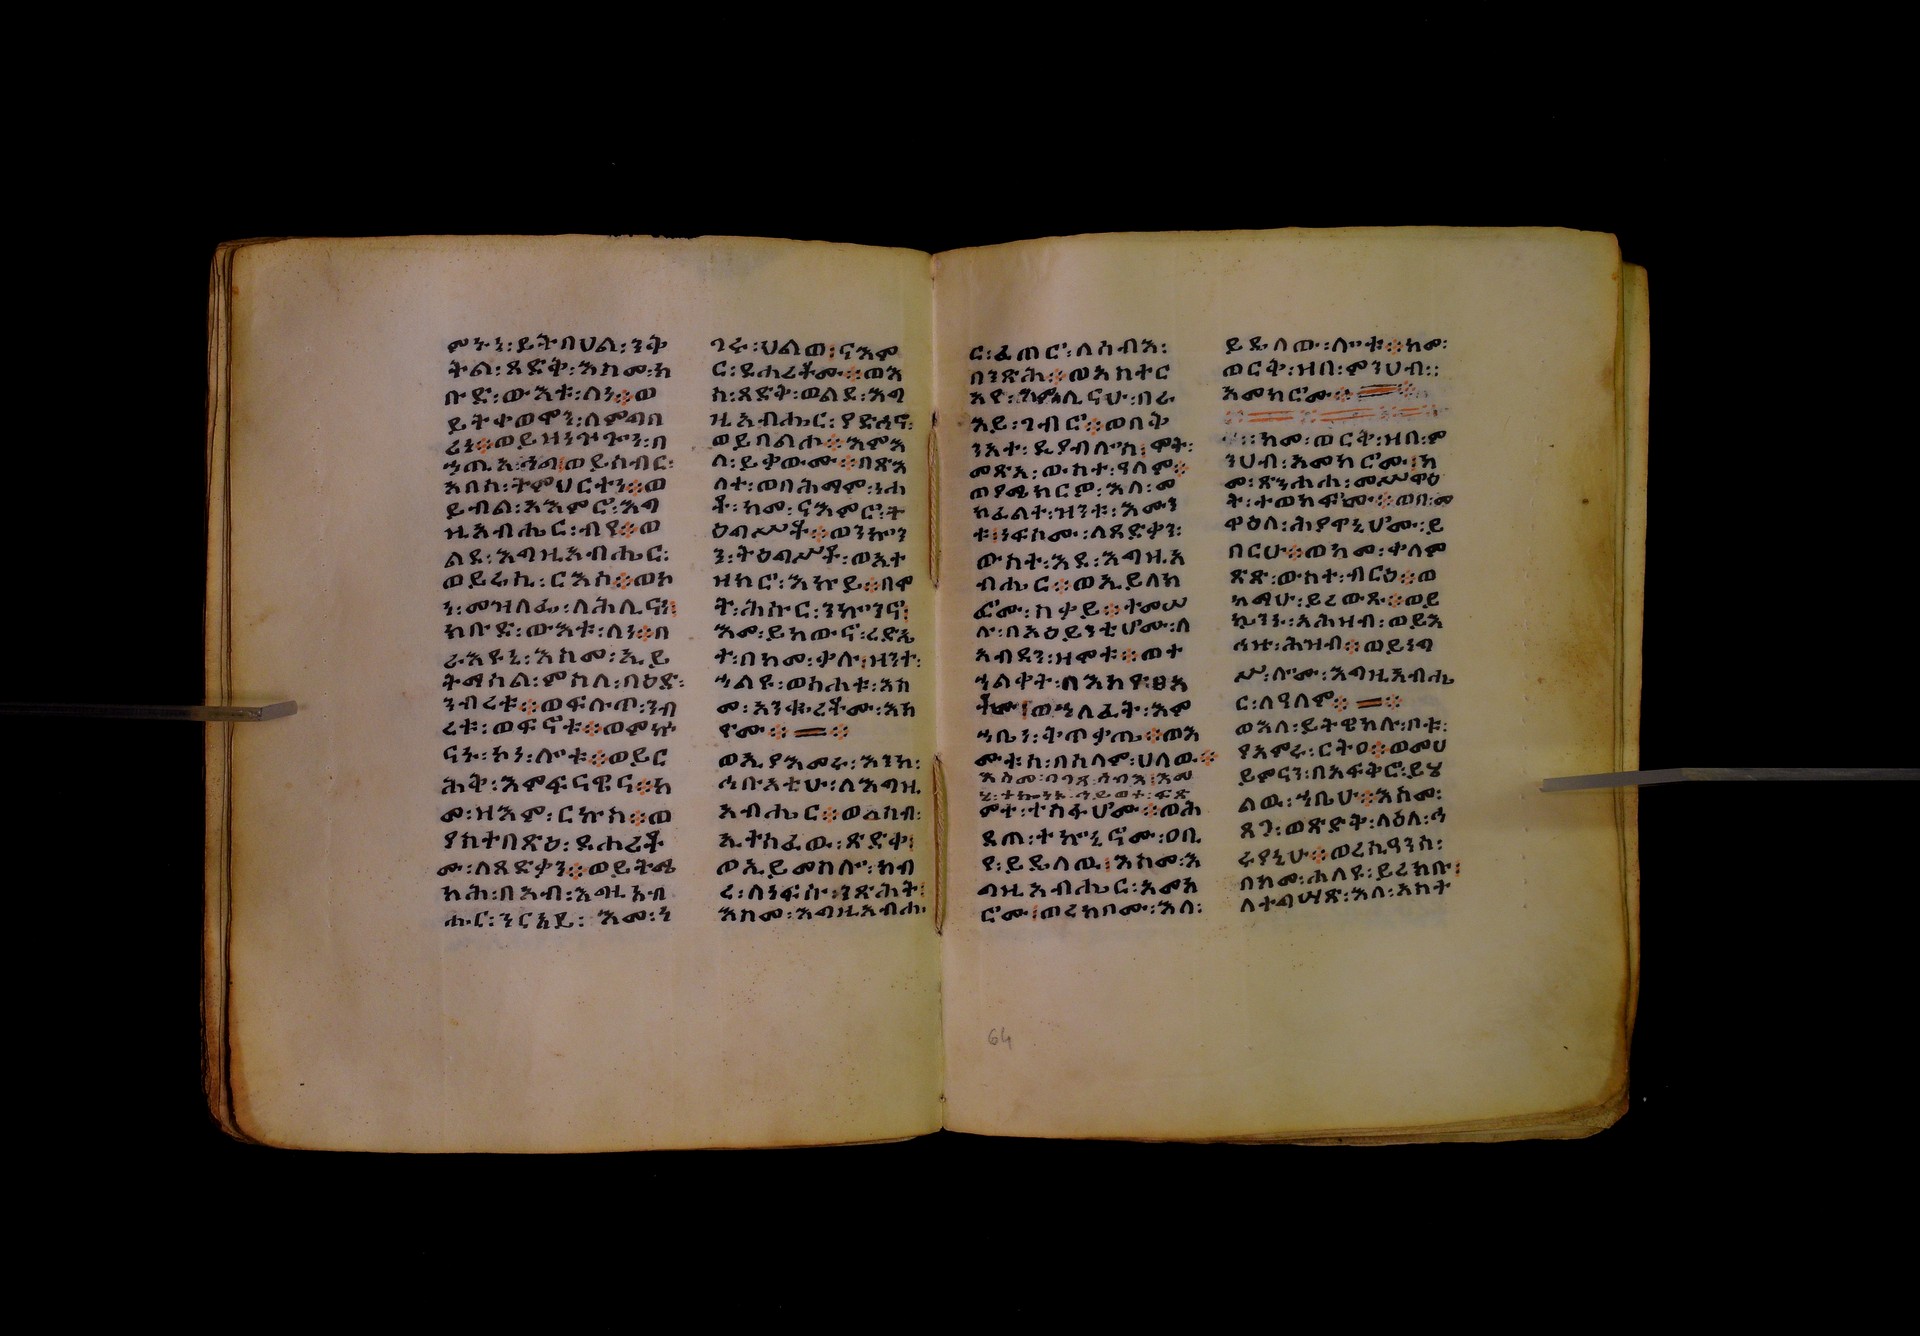 ምኑነ፡ይትበሀል፡ንቅ
ትል፡ጻድቅ፡እስመ፡ክ
ቡድ፡ውእቱ፡ለነ። ወ
ይትተወሞን፡ለምግባ
ሪነ። ወይዘነዝጐነ፡በ
ኀጢአትነ፡ወይከብር፡
አበስ፡ትምህርተነ። ወ
ይብል፡አአምሮ፡እግ
ዚአብሔር፡ብየ። ወ
ልደ፡እግዚአብሔር፡
ወይሬሲ፡ርእሶ። ወኮ
ነ፡መዝለፌ፡ለሕሊናነ፡
ክቡድ፡ውእቱ፡ለነ። በ
ራእዩኒ፡እስመ፡ኢይ
ትማሰል፡ምስለ፡በዕድ፡
ንብረቱ። ወፍሉጥ፡ንብ
ረቱ፡ወፍኖቱ። ወምኑ
ናነ፡ኮነ፡ሎቱ። ወይር
ሕቅ፡እምፍናዊና። ከ
መ፡ዘእም፡ርኩስ። ወ
ያስተበጽዕ፡ደሐሪቶ
ሙ፡ለጻድቃን። ወይትሜ
ካሕ፡በአብ፡እግዚአብ
ሔር፡ንርአይ፡ እመ፡ነ
ገሩ፡ህልወ፡ናእም
ር፡ደሐሪቶሙ። ወእ
ስ፡ጻድቅ፡ወልደ፡እግ
ዚአብሔር፡ያድኅኖ፡
ወይበልሐ። እምእ
ለ፡ይቀውሙ። በጽእ
ለት፡ወበሕማም፡ነሐ
ቶ፡ከመ፡ናእምር፡ት
ዕግሦቶ። ወንኰን
ን፡ትዕግሦቶ፡ወእተ
ዘከሮ፡እኩይ። በሞ
ት፡ሕሱር፡ንኰንኖ፡
እመ፡ይከውኖ፡ረድኤ
ት፡በከመ፡ቃሉ፡ዘንተ፡
ኀልዩ፡ወስሕቱ፡እስ
መ፡አንቁረቶሙ፡እከ
ዮሙ።
ወኢያእመሩ፡እንከ፡
ኅቡአቲሁ፡ለእግዚ
አብሔር። ወዐስብ፡
ኢትሰፈዉ፡ጽድቀ፡
ወኢይመስሎ፡ክብ
ረ፡ለነፍሱ፡ንጽሕት፡
እስመ፡እግዚአብሔ
ር፡ፈጠሮ፡ለሰብእ፡
በንጽሕ። ወአስተር
አየ፡ ኂህ፡በራ
እይ፡ገብሮ። ወበቅ
ንአተ፡ዲያብሎስ፡ሞት፡
መጽአ፡ውስተ፡ዓለም።
ወያሜክርዎ፡እለ፡መ
ክፈልተ፡ዝንቱ፡እሙን
ቱ፡ነፍሶሙ፡ለጻድቃን፡
ውስተ፡እደ፡እግዚአ
ብሔር። ወኢይለክ
ፎሙ፡ስቃይ። ተመሠ
ሉ፡በአዕይንቲሆሙ፡ለ
አብዳን፡ዘሞቱ። ወተ
ኀልቀት፡በእከዮ፡ፀአ
ቶሙ፡ወኀለፈት፡እም
ኀቤነ፡ቅጥቃጤ። ወእ
ሙቱሰ፡በሰላም፡ሀለዉ።
እስመ፡በገጸ፡ሰብእ፡እመ
ሂ፡ተኰነኑ፡ኅይወተ፡ፍጽ
ምተ፡ተስፋሆሙ። ወሕ
ዳጠ፡ተኰኒኖሙ፡ዐቢ
የ፡ይደለዉ፡እስመ፡እ
ግዚአብሔር፡አመከ
ሮሙ፡ወረከቦሙ፡እለ፡
ይደለው፡ሎቱ። ከመ፡
ወርቅ፡ዘበ፡ምንሀብ፡፡
አመከሮሙ።
ከመ፡ወርቅ፡ዘበ፡ም
ንሀብ፡አመከሮሙ፡ከ
መ፡ጽንሐሐ፡መሥዋዕ
ት፡ተወክፎሙ። ወበ፡መ
ዋዕለ፡ሕያዋኒሆሙ፡ይ
በርሁ። ወከመ፡ቀለም
ጽጽ፡ውስተ፡ብርዕ። ወ
ከማሁ፡ይረውጹ። ወይ
ኴንኑ፡አሕዛብ፡ወይእ
ኅዙ፡ሕዝብ። ወይነግ
ሥ፡ሎሙ፡እግዚአብሔ
ር፡ለዓለም።
ወእለ፡ይትዌከሉ፡ቦቱ፡
ያአምሩ፡ርትዐ። ወመሀ
ይምናን፡በአፍቅሮ፡ይሄ
ልዉ፡ኀቤሁ። እስመ፡
ጸጋ፡ወጽድቅ፡ላዕለ፡ኅ
ሩያኒሁ። ወረሲዓንሰ፡
በከመ፡ሐለዩ፡ይረክቡ፡
ለተግሣጽ፡እለ፡አስተ
64